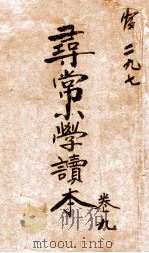 二九七
尋常小學讀本
卷九
mtoou.info